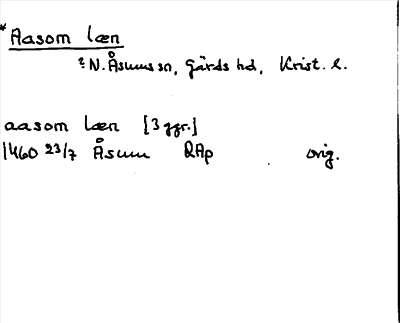 *Aasom læn
? N. Åsums sn, Gärds hd, Krist. l.
aasom læn [3 ggr.]
1460 23/7 Åsum RAp orig.